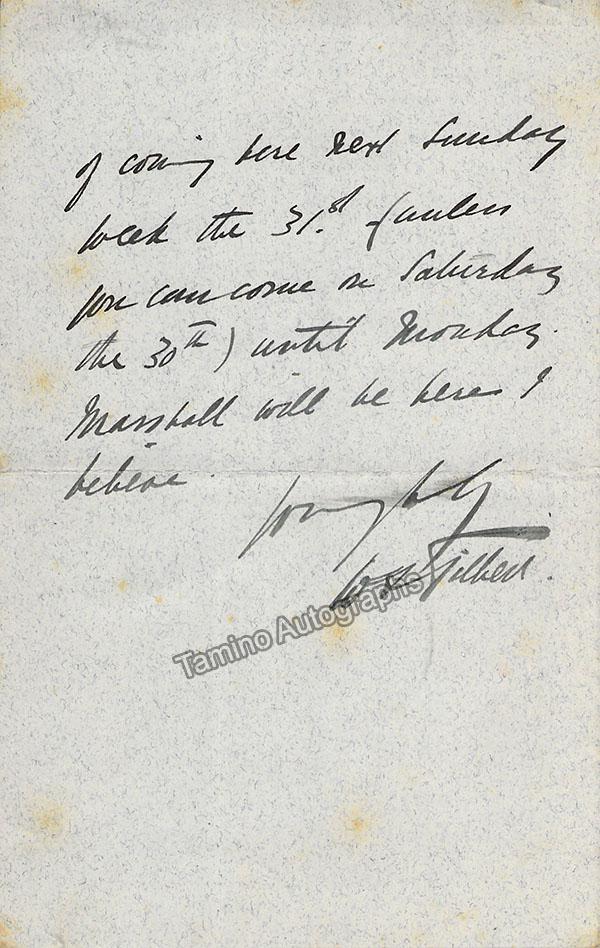 of coming here next Sunday
week the 31.st (unless
you can come on Saturday
the 30th) until Monday.
Marshall will be here I
believe.
Yours truly
WS Gilbert.
Tamino Autographs